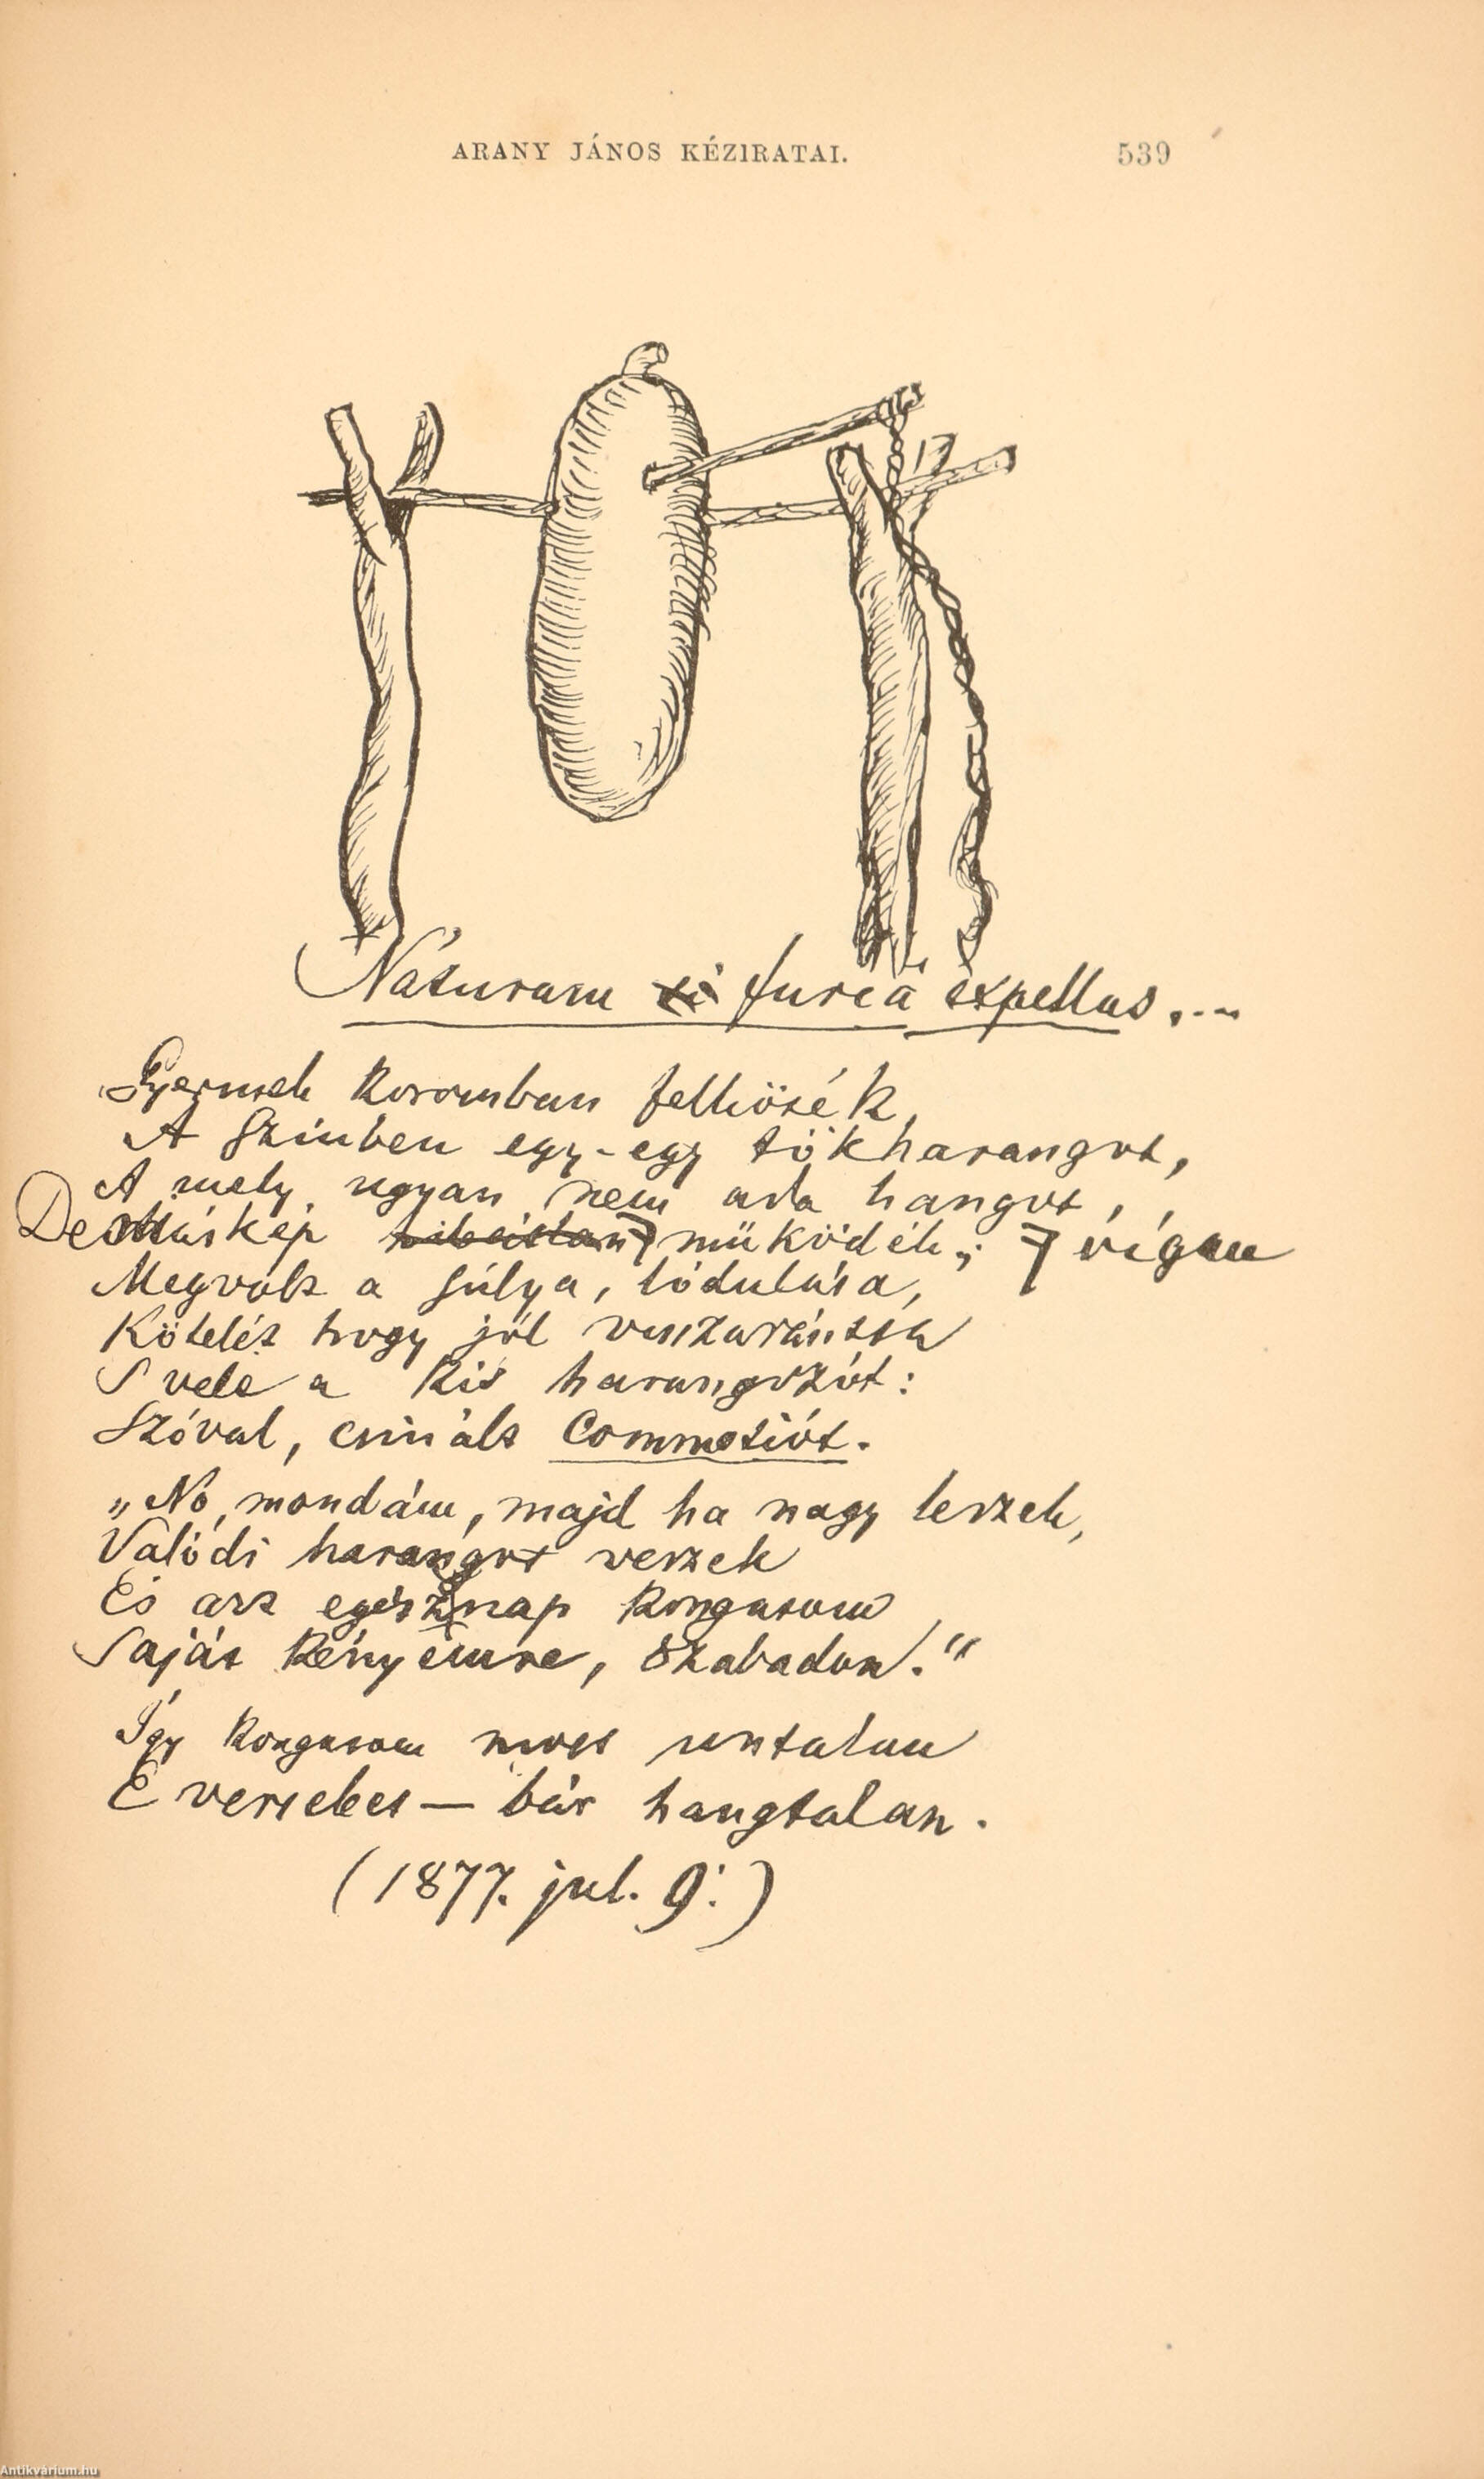 ARANY JÁNOS KÉZIRATAI. 539
Naturam furcâ expellas....
Gyermek koromban felkösék
A szinben egy-egy tökharangot,
A mely ugyan nem ada hangot,
De máskép hibátlan működék; vígan
Megvolt a súlya, lódulása,
Kötelét hogy jól visszarántsa
S vele a kis harangozót:
Szóval, csinált Commotiót.
„No, mondám, majd ha nagy leszek,
Valódi harangot veszek
És azt egész nap kongatom
Saját kényemre, szabadon."
Így kongatom most untalan
E verseket — bár hangtalan.
(1877. jul. 9.)
Antikvárium.hu